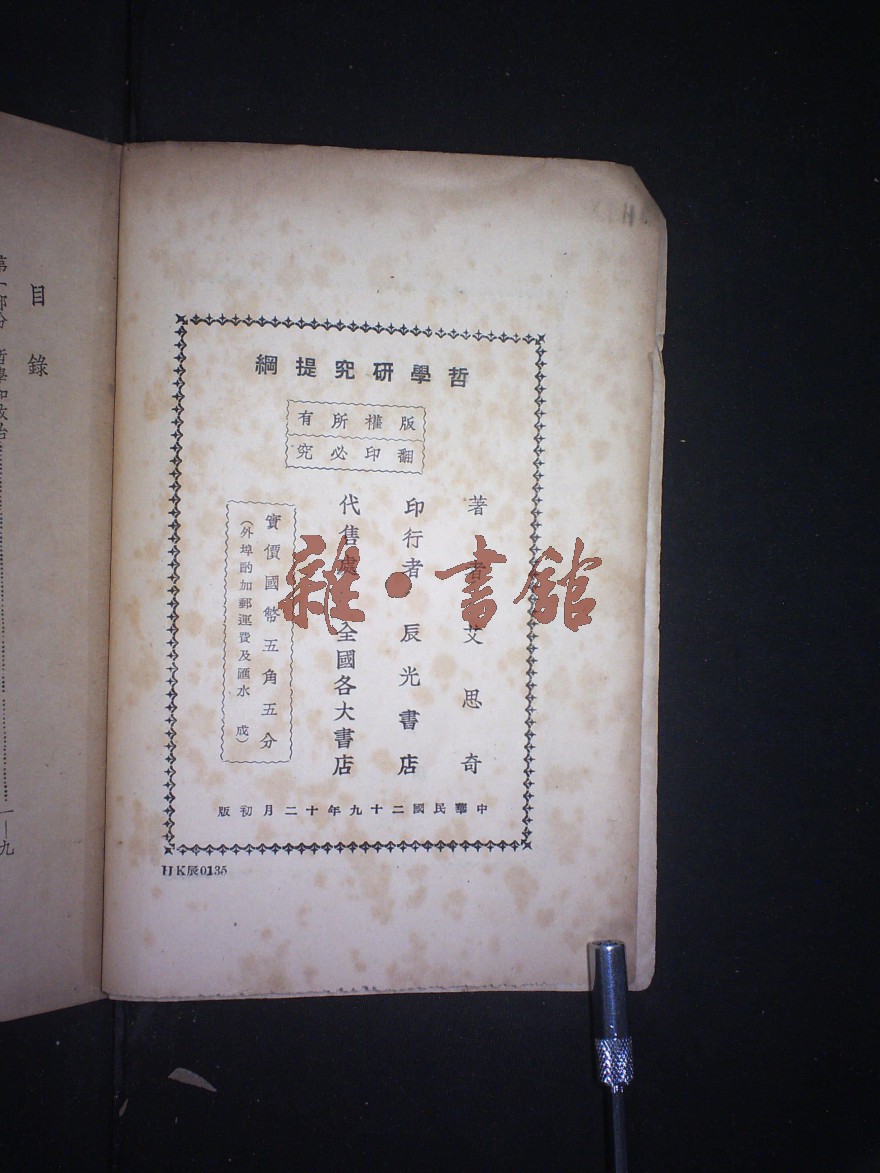 哲學研究提綱
版權所有
翻印必究
著者 艾思奇
印行者 辰光書店
代售處 全國各大書店
實價國幣五角五分
(外埠酌加郵運費及匯水 成)
中華民國二十九年十二月初版
HK辰0135
雜·書館
目錄
第一部分 哲學和政治……一—九